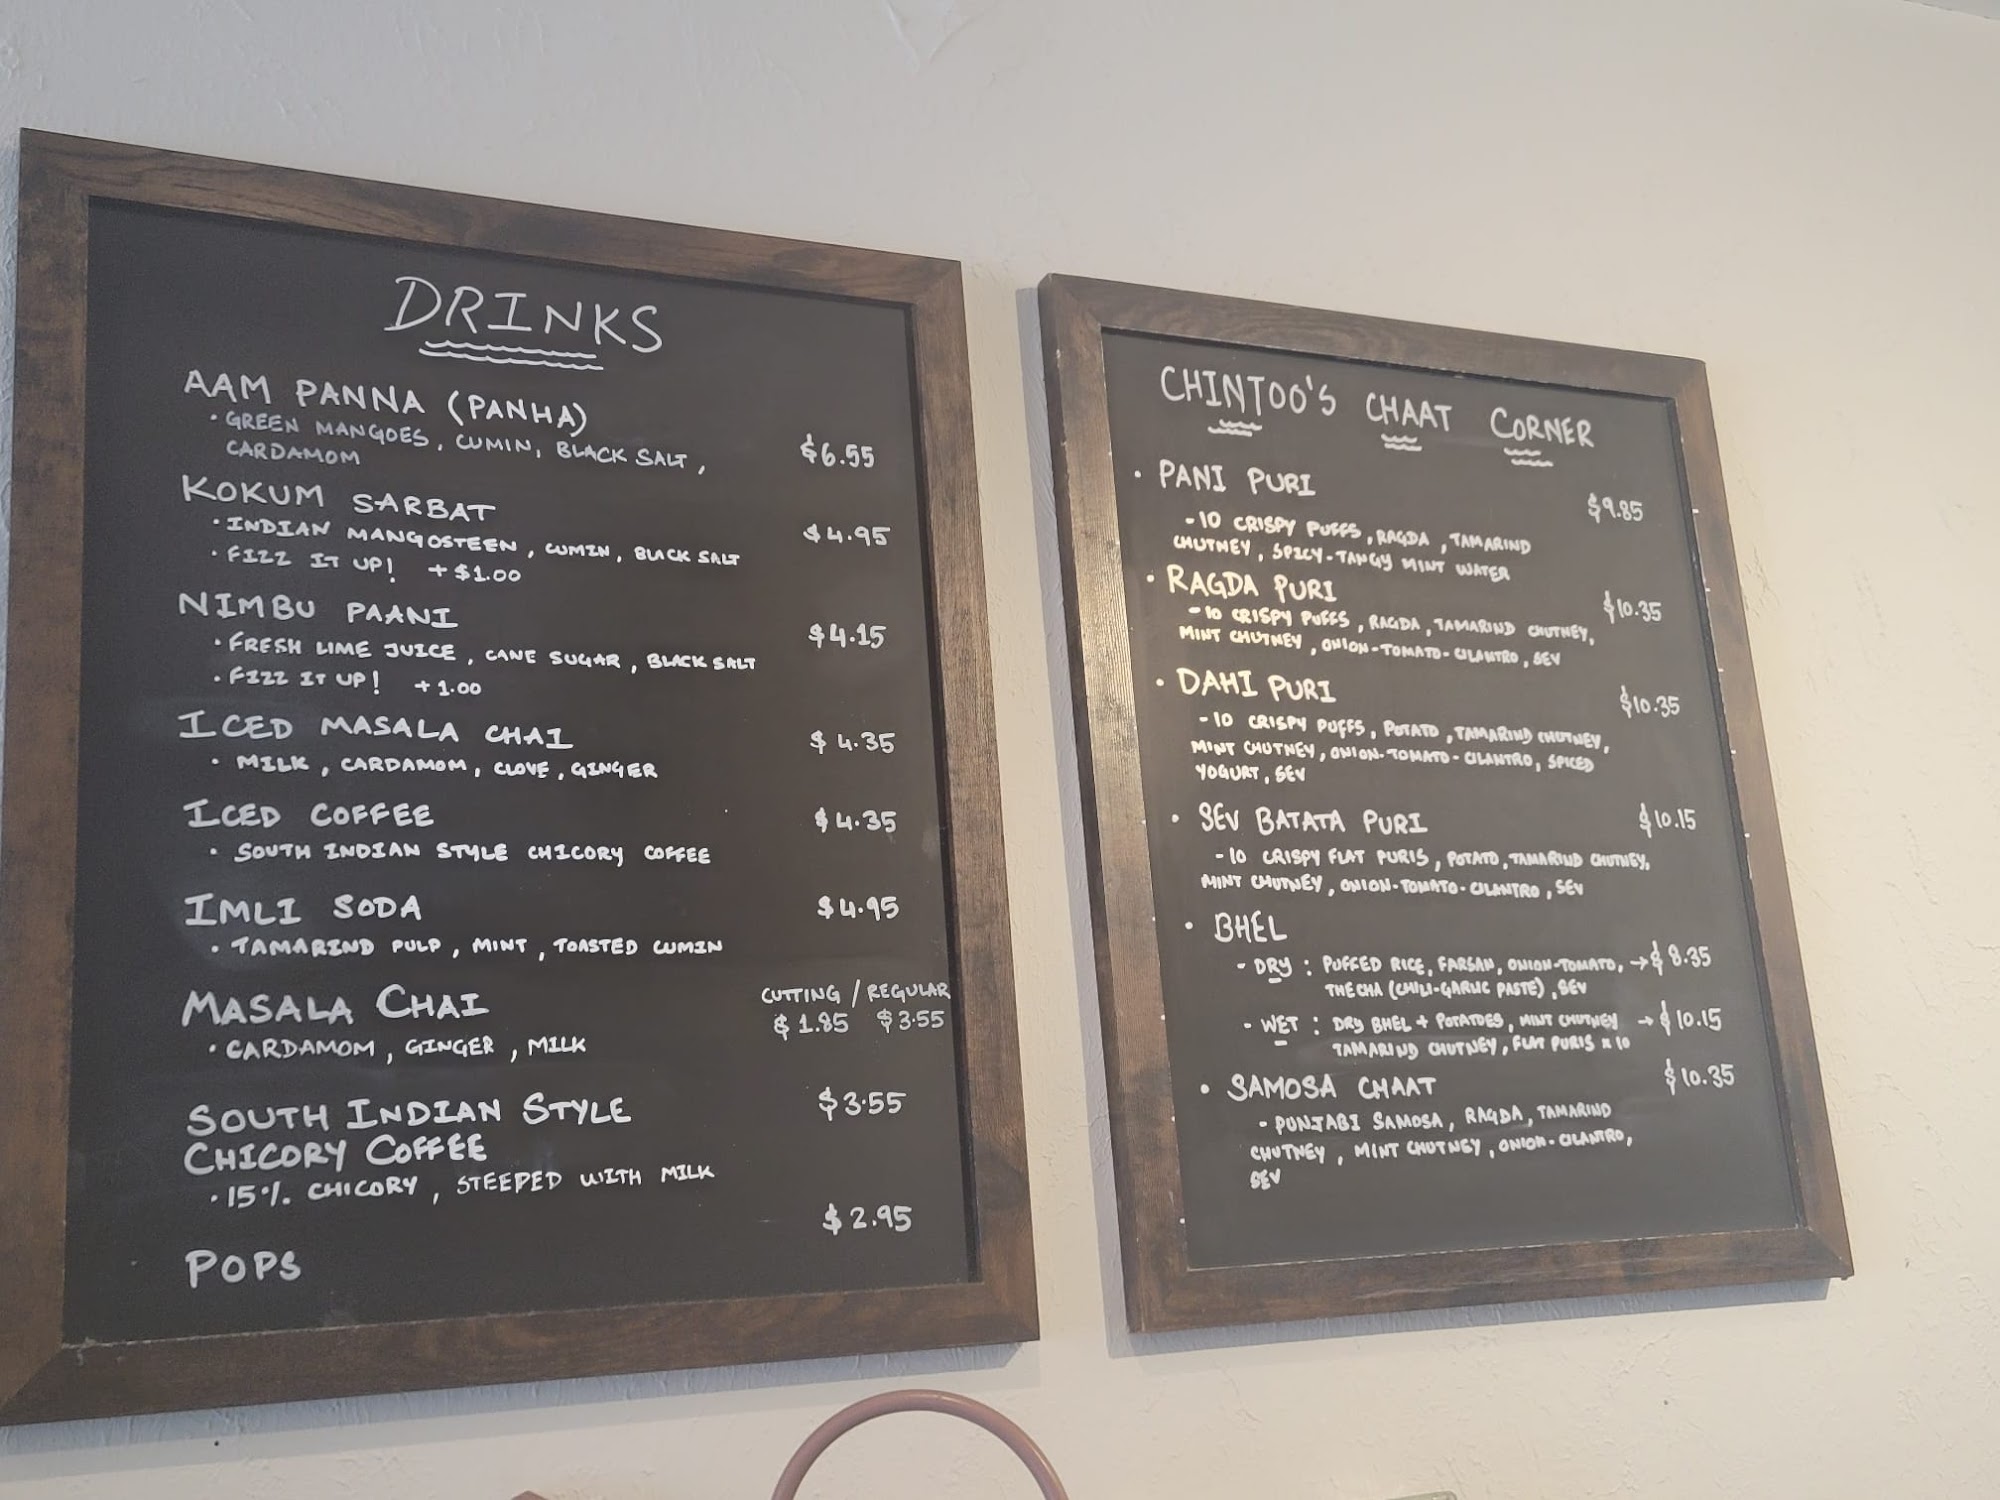 DRINKS
AAM PANNA (PANHA)
• GREEN MANGOES, CUMIN, BLACK SALT, $6.55
CARDAMOM
KOKUM SARBAT
• INDIAN MANGOSTEEN, CUMIN, BLACK SALT $4.95
• FIZZ IT UP! +$1.00
NIMBU PAANI $4.15
• FRESH LIME JUICE, CANE SUGAR, BLACK SALT
• FIZZ IT UP! +1.00
ICED MASALA CHAI $4.35
• MILK, CARDAMOM, CLOVE, GINGER
ICED COFFEE $4.35
• SOUTH INDIAN STYLE CHICORY COFFEE
IMLI SODA $4.95
• TAMARIND PULP, MINT, TOASTED CUMIN
MASALA CHAI CUTTING / REGULAR
$1.85 $3.55
• CARDAMOM, GINGER, MILK
SOUTH INDIAN STYLE $3.55
CHICORY COFFEE
• 15% CHICORY, STEEPED WITH MILK
$2.95
POPS
CHINTOO'S CHAAT CORNER
• PANI PURI $9.85
- 10 CRISPY PUFFS, RAGDA, TAMARIND
CHUTNEY, SPICY-TANGY MINT WATER
• RAGDA PURI $10.35
- 10 CRISPY PUFFS, RAGDA, TAMARIND CHUTNEY,
MINT CHUTNEY, ONION-TOMATO-CILANTRO, SEV
• DAHI PURI $10.35
- 10 CRISPY PUFFS, POTATO, TAMARIND CHUTNEY,
MINT CHUTNEY, ONION-TOMATO-CILANTRO, SPICED
YOGURT, SEV
• SEV BATATA PURI $10.15
- 10 CRISPY FLAT PURIS, POTATO, TAMARIND CHUTNEY,
MINT CHUTNEY, ONION-TOMATO-CILANTRO, SEV
• BHEL
- DRY : PUFFED RICE, FARSAN, ONION-TOMATO, → $8.35
THECHA (CHILI-GARLIC PASTE), SEV
- WET : DRY BHEL + POTATOES, MINT CHUTNEY → $10.15
TAMARIND CHUTNEY, FLAT PURIS x 10
• SAMOSA CHAAT $10.35
- PUNJABI SAMOSA, RAGDA, TAMARIND
CHUTNEY, MINT CHUTNEY, ONION-CILANTRO,
SEV